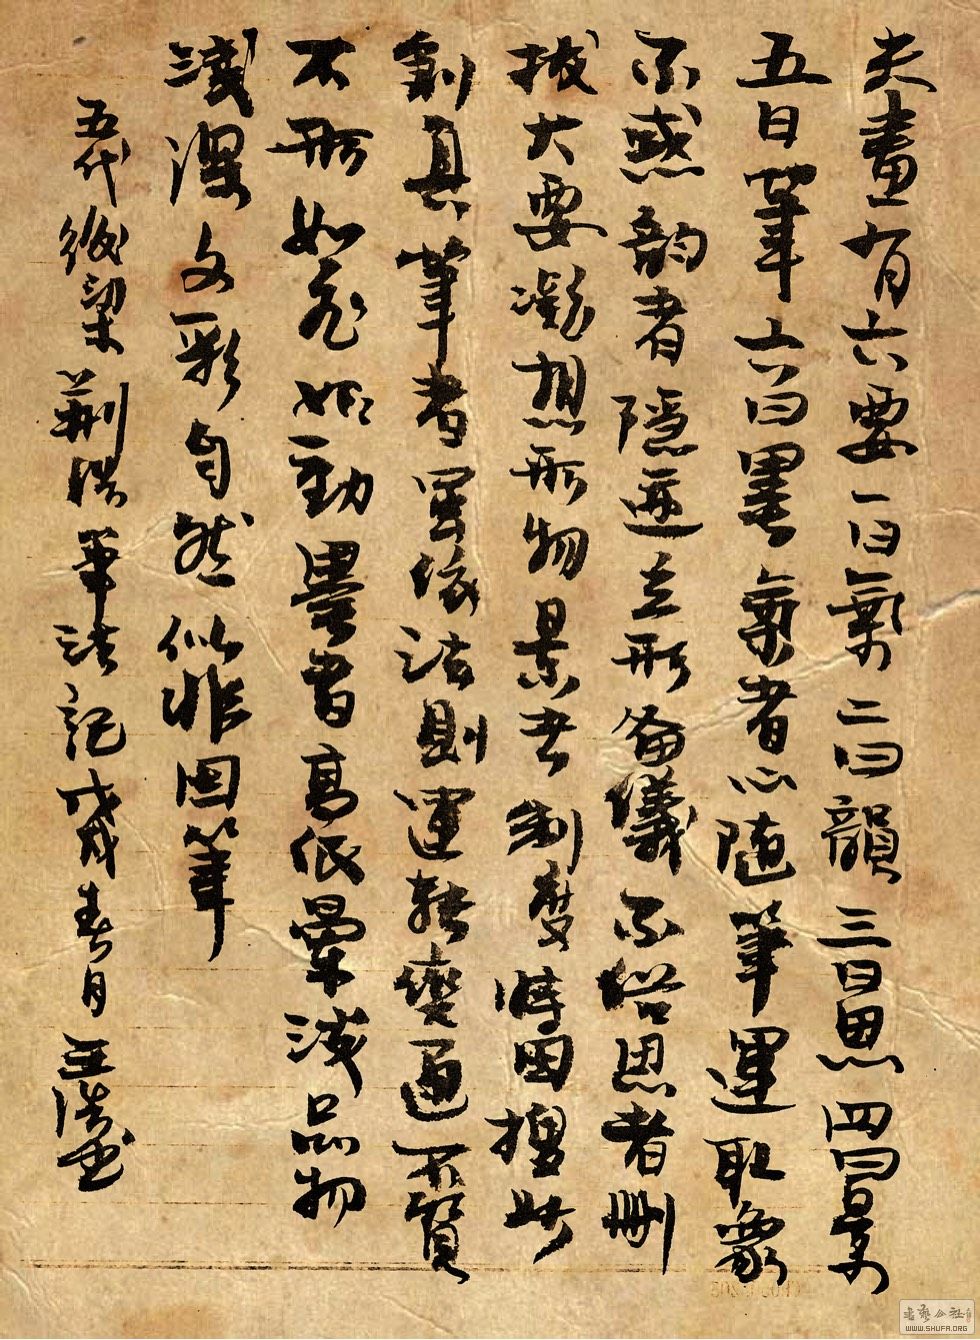 夫畫有六要一曰氣二曰韻三曰思四曰景
五曰筆六曰墨氣者心随筆運取象
不惑韵者隱迹立形備儀不俗思者删
拔大要凝想形物景者制度時因搜妙
創真筆者雖依法則運轉變通不質
不形如飛如動墨者高低暈淡品物
淺深文彩自然似非因筆
五代後梁荆浩筆法記戊戌春月王浩書
書藝公社
WWW.SHUFA.ORG